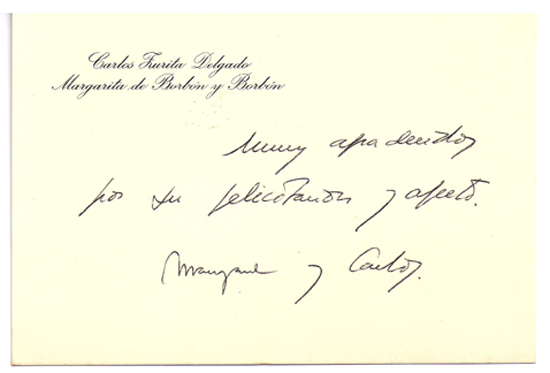 Carlos Zurita Delgado
Margarita de Borbón y Borbón
Muy agradecidos
por su felicitación y afecto.
Margarita y Carlos.